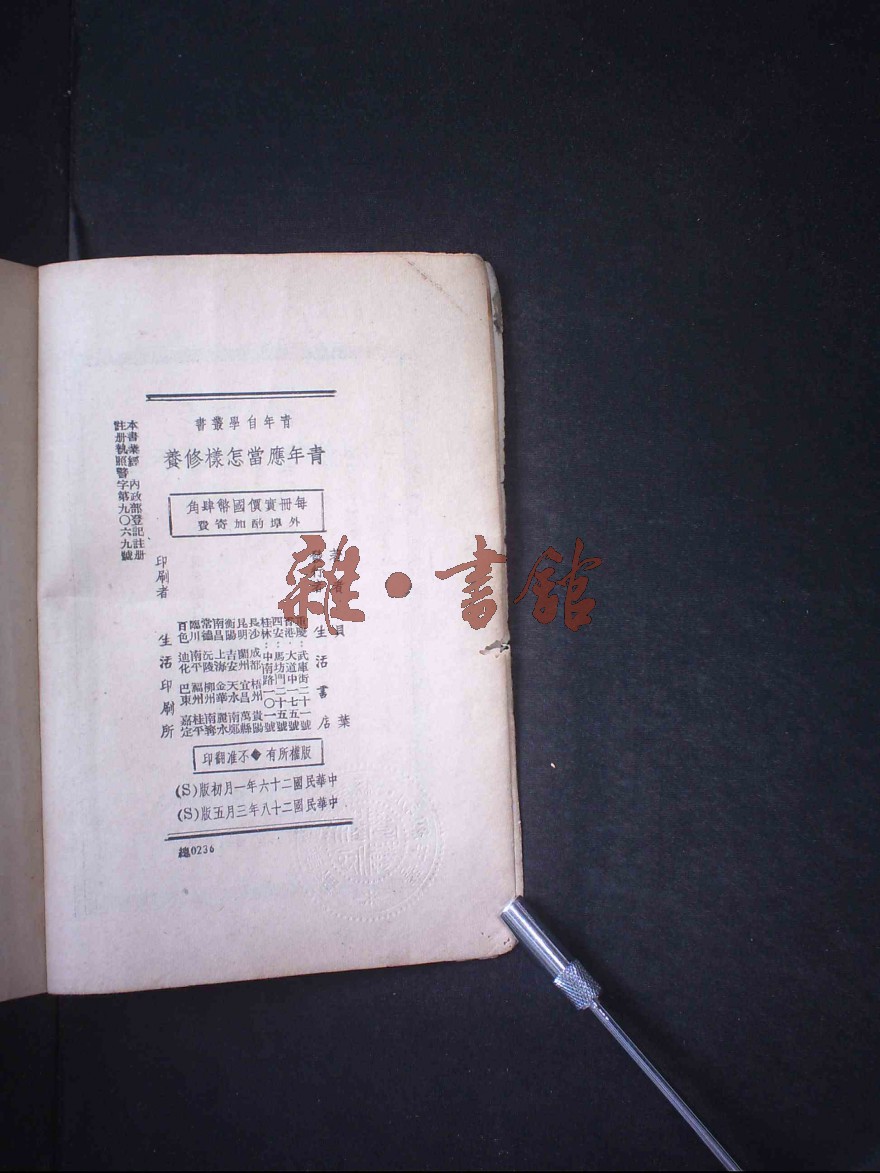 青年自學叢書
青年應當怎樣修養
每冊實價國幣肆角
外埠酌加寄費
著者
葉
發行者
生活書店
重慶：武庫街
香港：大道中
西安：馬坊門
桂林：中南路
長沙 成都 梧州 貴陽
昆明 蘭州 宜昌 萬縣
衡陽 吉安 天水 南鄭
南昌 上海 金華 麗水
常德 沅陵 柳州 南寧
臨川 南平 福州 桂平
百色 迪化 巴東 嘉定
印刷者
生活印刷所
本書業經內政部登記註冊
註冊執照警字第九〇六九號
版權所有◆不准翻印
中華民國二十六年一月初版(S)
中華民國二十八年三月五版(S)
總0236
雜·書館